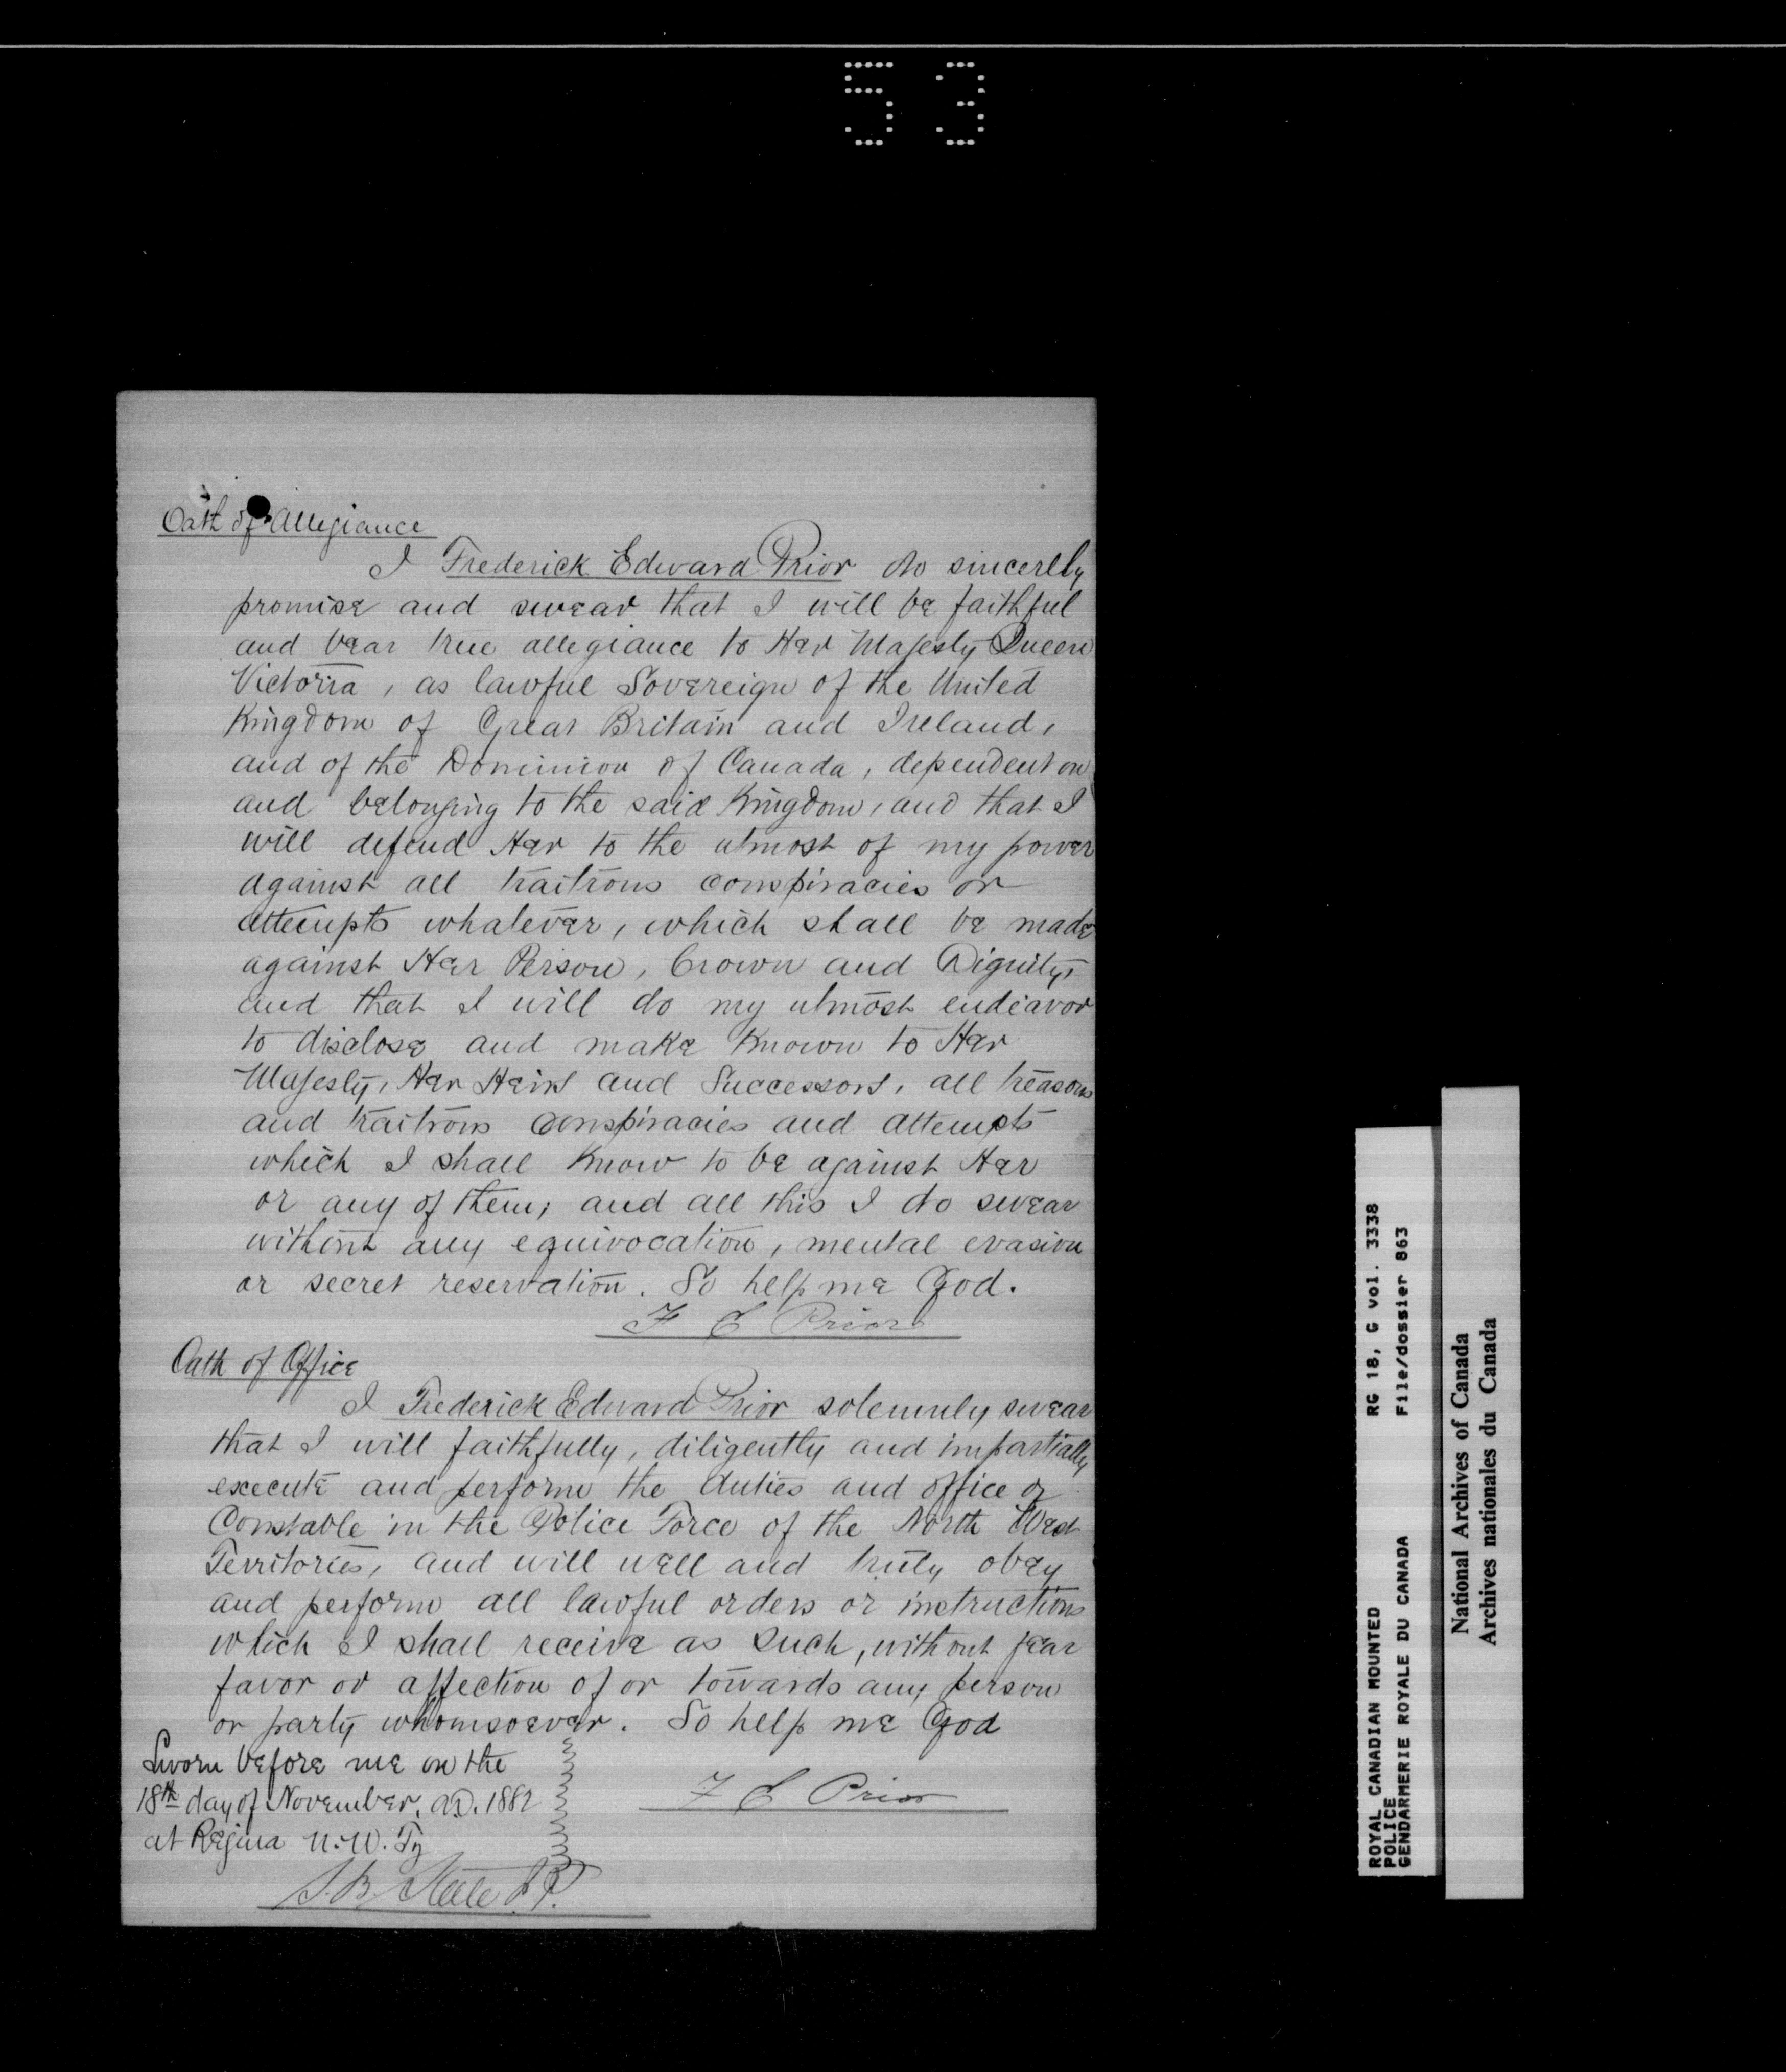 53
Oath of Allegiance
I Frederick Edward Prior do sincerely
promise and swear that I will be faithful
and bear true allegiance to Her Majesty Queen
Victoria, as lawful Sovereign of the United
Kingdom of Great Britain and Ireland,
and of the Dominion of Canada, dependent on
and belonging to the said Kingdom, and that I
will defend Her to the utmost of my power
against all traitrous conspiracies or
attempts whatever, which shall be made
against Her Person, Crown and Dignity,
and that I will do my utmost endeavor
to disclose and make known to Her
Majesty, Her Heirs and Successors, all treasons
and traitrous conspiracies and attempts
which I shall know to be against Her
or any of them; and all this I do swear
without any equivocation, mental evasion
or secret reservation. So help me God.
F E Prior
Oath of Office
I Frederick Edward Prior solemnly swear
that I will faithfully, diligently and impartially
execute and perform the duties and office of
Constable in the Police Force of the North West
Territories, and will well and truly obey
and perform all lawful orders or instructions
which I shall receive as such, without fear
favor or affection of or towards any person
or party whomsoever. So help me God
Sworn before me on the
18th day of November, A.D. 1882
at Regina N.W. Ty
F E Prior
S.B. Steele J.P.
ROYAL CANADIAN MOUNTED RG 18, G vol. 3338
POLICE
GENDARMERIE ROYALE DU CANADA File/dossier 863
National Archives of Canada
Archives nationales du Canada